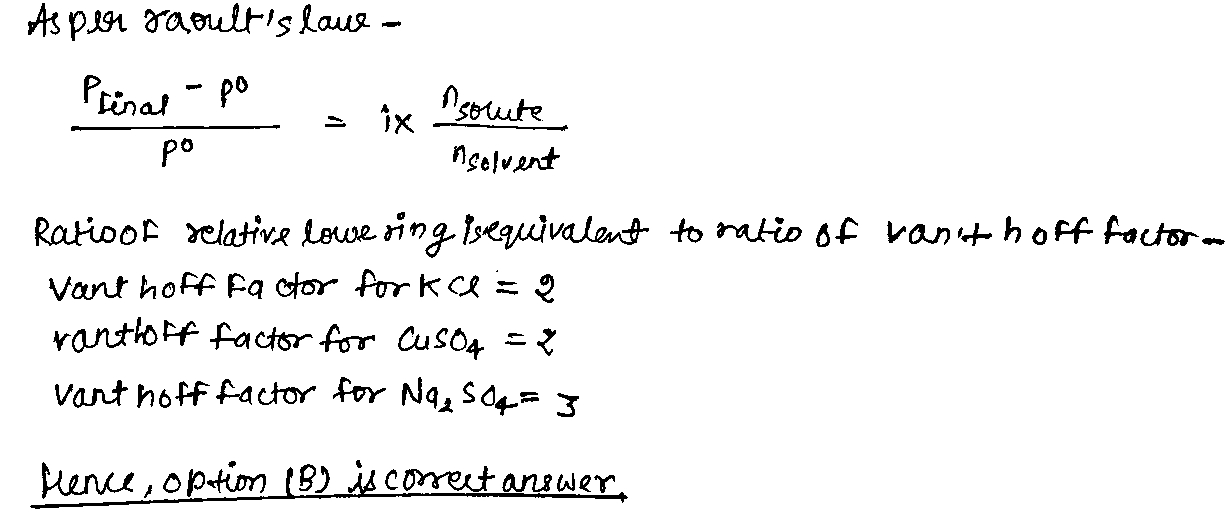 As per raoult's law -
P final - P⁰ / P⁰ = i × n solute / n solvent
Ratio of relative lowering is equivalent to ratio of van't hoff factor -
Vant hoff factor for KCl = 2
vant hoff factor for CuSO₄ = 2
Vant hoff factor for Na₂SO₄ = 3
Hence, option (B) is correct answer.